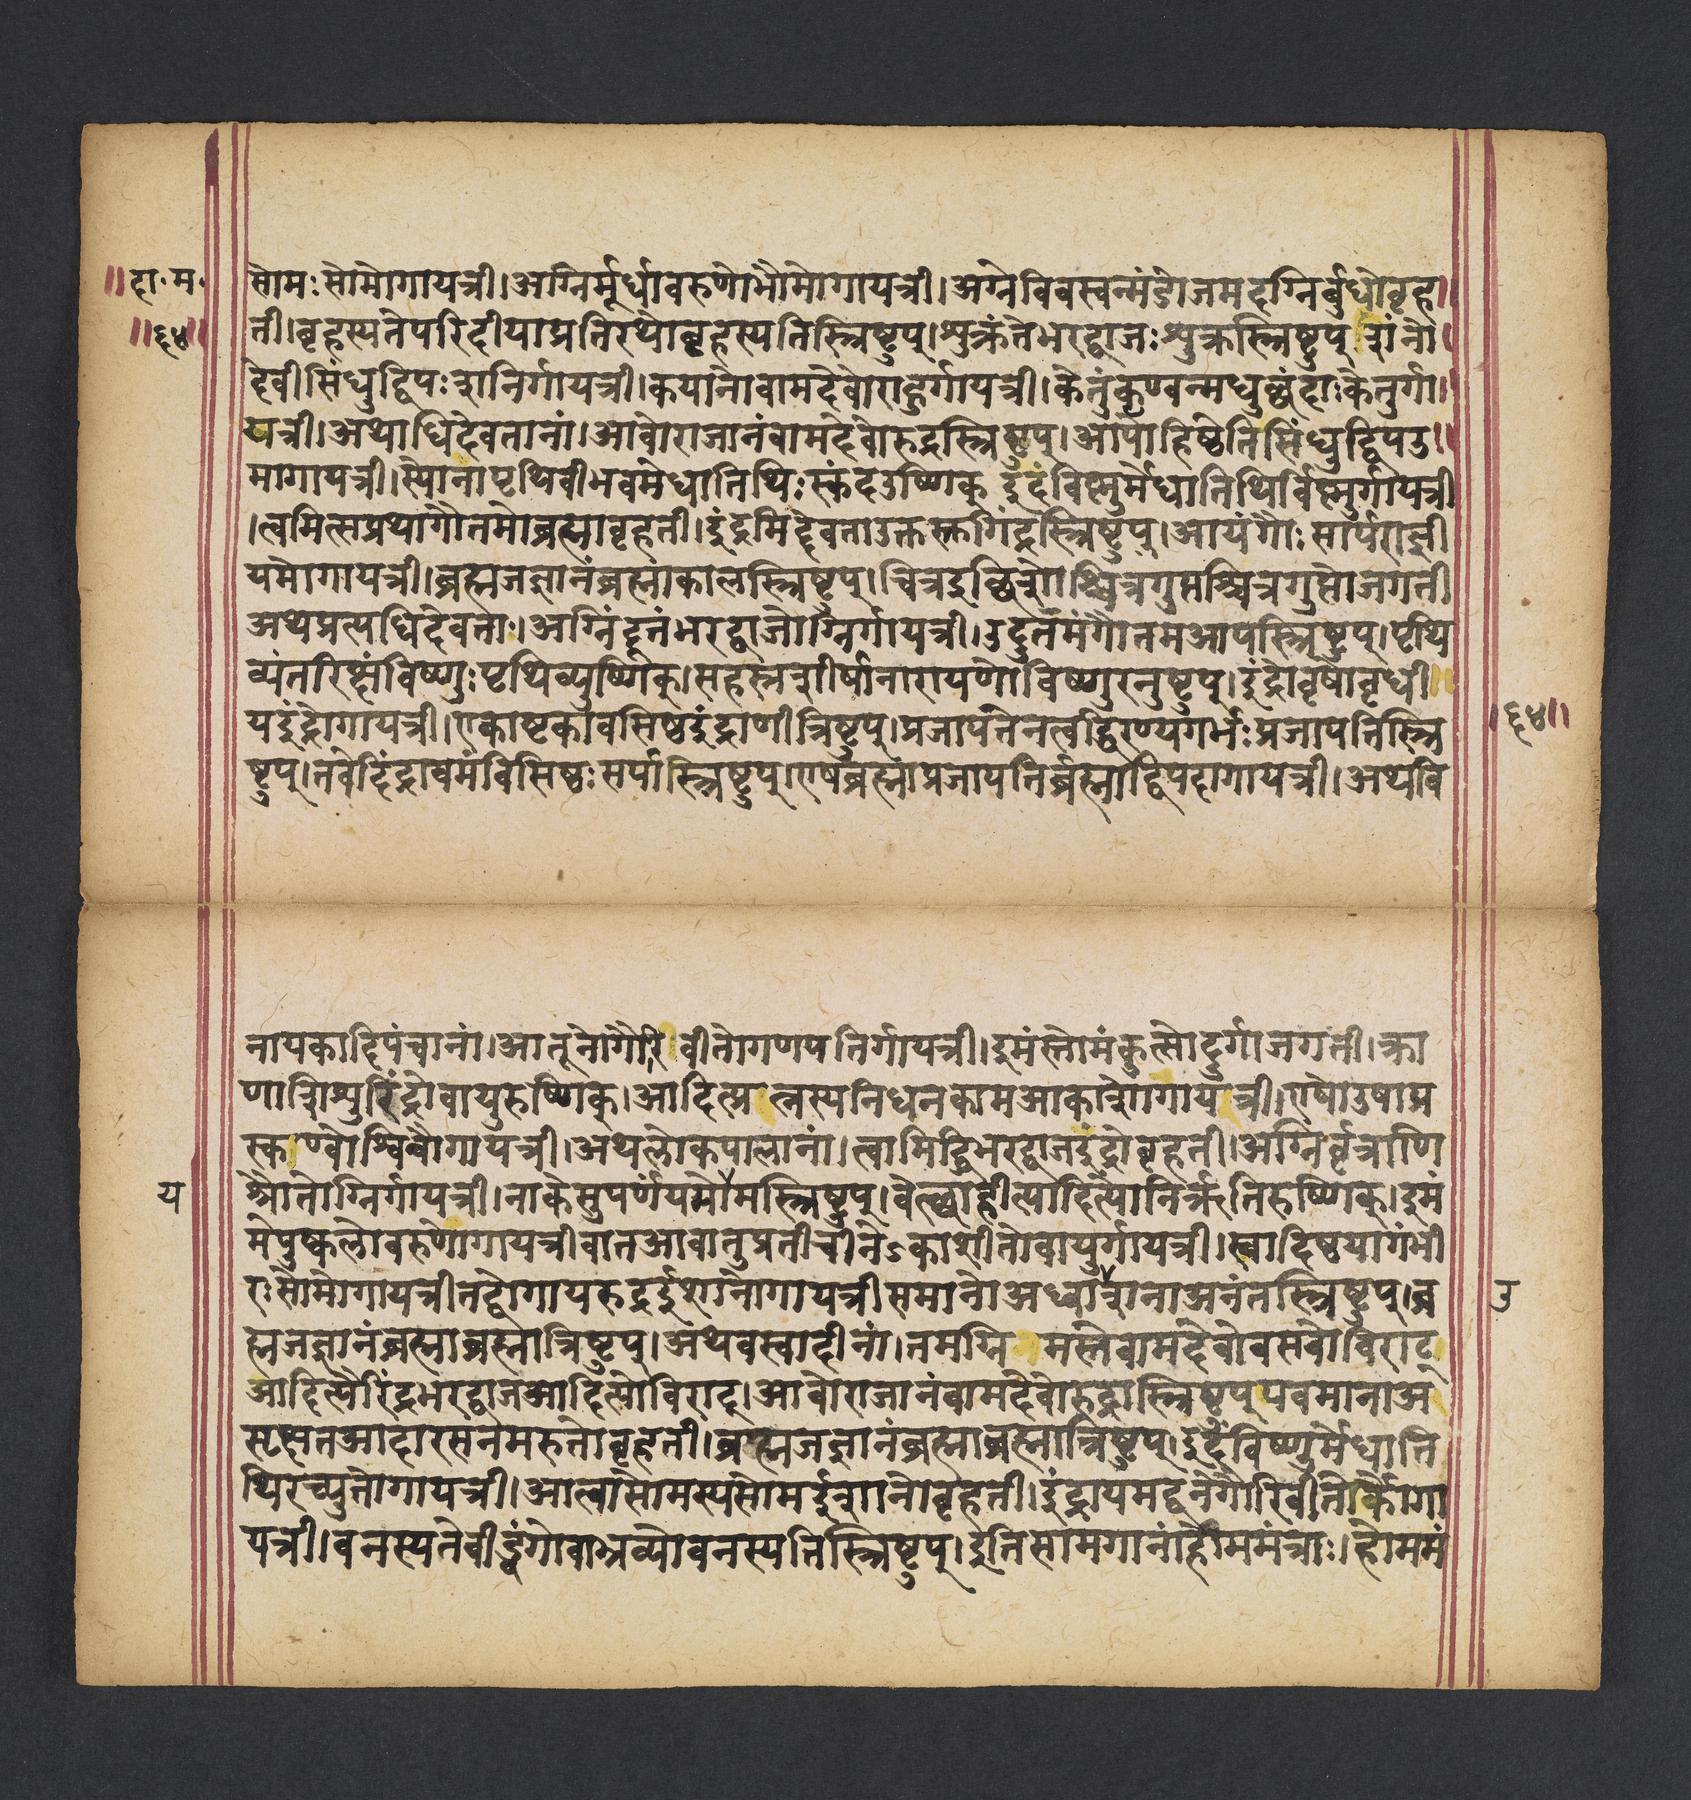 ॥दा॰म॰
॥६४॥
सोमः सोमोगायत्री।अग्निर्मूर्धावरुणोभौमोगायत्री।अग्नेविवस्वन्मंडोजमदग्निर्बुधोबृह
ती।बृहस्पतेपरिदीयाप्रतिरथोबृहस्पतिस्त्रिष्टुप्।शुक्रंतेभरद्वाजःशुक्रस्त्रिष्टुप् शंनो
देवीसिंधुद्विपःशनिर्गायत्री।कयानोवामदेवोराहुर्गायत्री।केतुंकृण्वन्मधुछंदाःकेतुर्गा
यत्री।अथाधिदेवतानां।आवोराजानंवामदेवोरुद्रस्त्रिष्टुप्।आपोहिष्ठेतिसिंधुद्विपउ
मागायत्री।स्योनापृथिवीभवमेधातिथिःस्कंदउष्णिक् इदंविष्णुर्मेधातिथिर्विष्णुर्गायत्री
।त्वमित्सप्रथागौतमोब्रह्माबृहती।इंद्रमिद्देवताउक्तस्क्तगिंद्रस्त्रिष्टुप्।आयंगौःसार्पराज्ञी
यमोगायत्री।ब्रह्मजज्ञानंब्रह्मांकालस्त्रिष्टुप्।चित्रइछिशोश्चित्रगुप्तश्चित्रगुप्तोजगती
अथप्रत्यधिदेवताः।अग्निंदूतंभरद्वाजोग्निर्गायत्री।उदुत्तमंगौतमआपस्त्रिष्टुप्।पृथि
व्यंतरिक्षंविष्णुःपृथिव्युष्णिक्।सहस्रशीर्षानारायणोविष्णुरनुष्टुप्।इंद्रोवृषावृधी
यइंद्रोगायत्री।एकाष्टकावसिष्ठइंद्राणीत्रिष्टुप्।प्रजापतेनत्वद्धिरण्यगर्भःप्रजापतिस्त्रि
॥६४॥
ष्टुप्।नवेदिंद्रावमंविसिष्ठःसर्पास्त्रिष्टुप्।एषब्रह्मांप्रजापतिर्ब्रह्माद्विपदागायत्री।अथवि
नायकादिपंचानां।आतूनोगौरि वीतोगणपतिर्गायत्री।इमंस्तोमंकुत्सोदुर्गाजगती।क्रा
णाशिशुरिंद्रोवायुरुष्णिक्।आदित्प्र त्नस्यनिधनकामआकाशोगायत्री।एषोउषाप्र
स्क ण्वोश्विनौगायत्री।अथलोकपालानां।त्वामिद्धिभरद्वाजइंद्रोबृहती।अग्निर्वृत्राणि
य
औतोग्निर्गायत्री।नाकेसुपर्णंयमोमस्त्रिष्टुप्।वेत्छाहीत्यादित्योनिर्ऋतिरुष्णिक्।इमं
मेपुष्कलोवरुणोगायत्रीवातआवातुप्रतीचीनेऽकाशीतोवायुर्गायत्री।स्वादिष्ठयागंभी
रःसोमोगायत्रीतद्वोगायरुद्रईशानोगायत्रीसमानोअध्वाशनाअनंतस्त्रिष्टुप्।ब्र
उ
ह्मजज्ञानंब्रह्माब्रह्मात्रिष्टुप्।अथवस्वादीनां।तमग्नि मस्तेवामदेवोवसवोविराट्
आदित्यैरिंद्रभरद्वाजआदित्योविराट्।आवोराजानंवामदेवोरुद्रास्त्रिष्टुप्पवमानाअ
सृक्षतआदारसनमरुतोबृहती।ब्रह्मजज्ञानंब्रह्माब्रह्मात्रिष्टुप्।इदंविष्णुर्मेधाति
थिरच्युतोगायत्री।आत्वासोमस्यसोमईशानोबृहती।इंद्रायमद्वनेगौरिवीतिर्कोगा
यत्री।वनस्पतेवीड्वंगोवाभ्रव्योवनस्पतिस्त्रिष्टुप्।इतिसामगानांहोममंत्राः।होममं